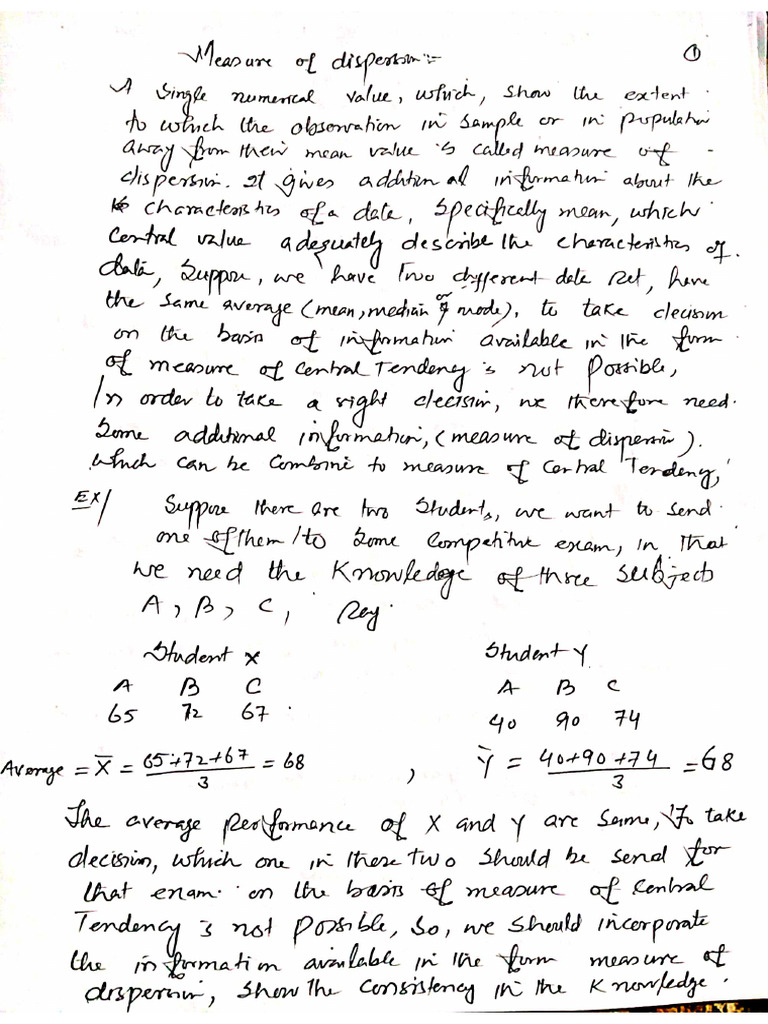 Measure of dispersion:- 1
A single numerical value, which, show the extent
to which the observation in sample or in population
away from their mean value is called measure of
dispersion. It gives additional information about the
characteristics of a date, specifically mean, which
central value adequately describe the characteristics of.
data, Suppose, we have Two different data set, have
the same average (mean, median or mode), to take decision
on the basis of information available in the form
of measure of central Tendency is not possible,
In order to take a right decision, we therefore need.
Some additional information, (measure of dispersion).
which can be combine to measure of Central Tendency,
EX/ Suppose there are two Students, we want to send
one of them to Some Competitive exam, in that
we need the Knowledge of three subjects
A, B, C,
Student X Student Y
A B C A B C
65 72 67 . 40 90 74
Average = X̄ = 65+72+67/3 = 68 , Ȳ = 40+90+74/3 = 68
The average performance of X and Y are same, To take
decision, which one in these two should be send for
that exam. on the basis of measure of Central
Tendency is not possible, So, we should incorporate
the information available in the form measure of
dispersion, show the consistency in the Knowledge.